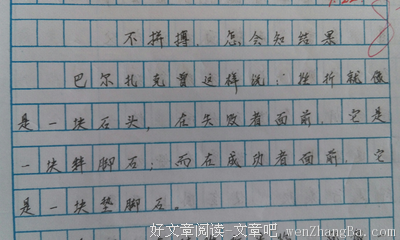 不拼搏，怎会知结果
巴尔扎克曾这样说：挫折就像
是一块石头，在失败者面前，它是
一块绊脚石；而在成功者面前，它
是一块垫脚石。
好文章阅读-文章吧
wenZhangBa.com